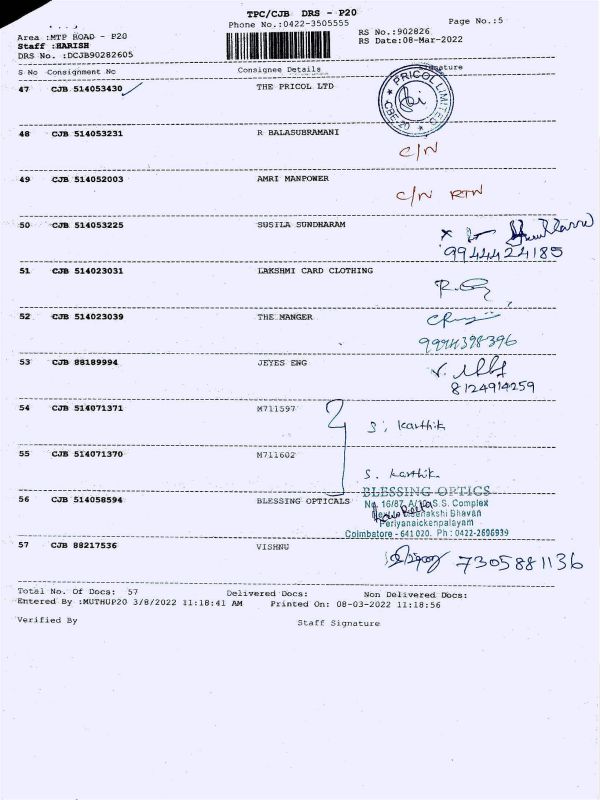 TPC/CJB DRS - P20
Phone No.:0422-3505555
Page No.:5
Area :MTP ROAD - P20
RS No.:902826
Staff :HARISH
RS Date:08-Mar-2022
DRS No. :DCJB90282605
S No Consignment No Consignee Details Signature
47 CJB 514053430 THE PRICOL LTD
PRICOL LIMITED
CBE-20
48 CJB 514053231 R BALASUBRAMANI
C/N
49 CJB 514052003 AMRI MANPOWER
C/N RTN
50 CJB 514053225 SUSILA SUNDHARAM
9944424185
51 CJB 514023031 LAKSHMI CARD CLOTHING
52 CJB 514023039 THE MANGER
9994398396
53 CJB 88189994 JEYES ENG
8124914259
54 CJB 514071371 M711597
S. Karthik
55 CJB 514071370 M711602
S. Karthik
BLESSING OPTICS
56 CJB 514058594 BLESSING OPTICALS
No. 16/87, S.S. Complex
Meenakshi Bhavan
Periyanaickenpalayam
Coimbatore - 641 020. Ph : 0422-2696939
57 CJB 88217536 VISHNU
7305881136
Total No. Of Docs: 57 Delivered Docs: Non Delivered Docs:
Entered By :MUTHUP20 3/8/2022 11:18:41 AM Printed On: 08-03-2022 11:18:56
Verified By Staff Signature